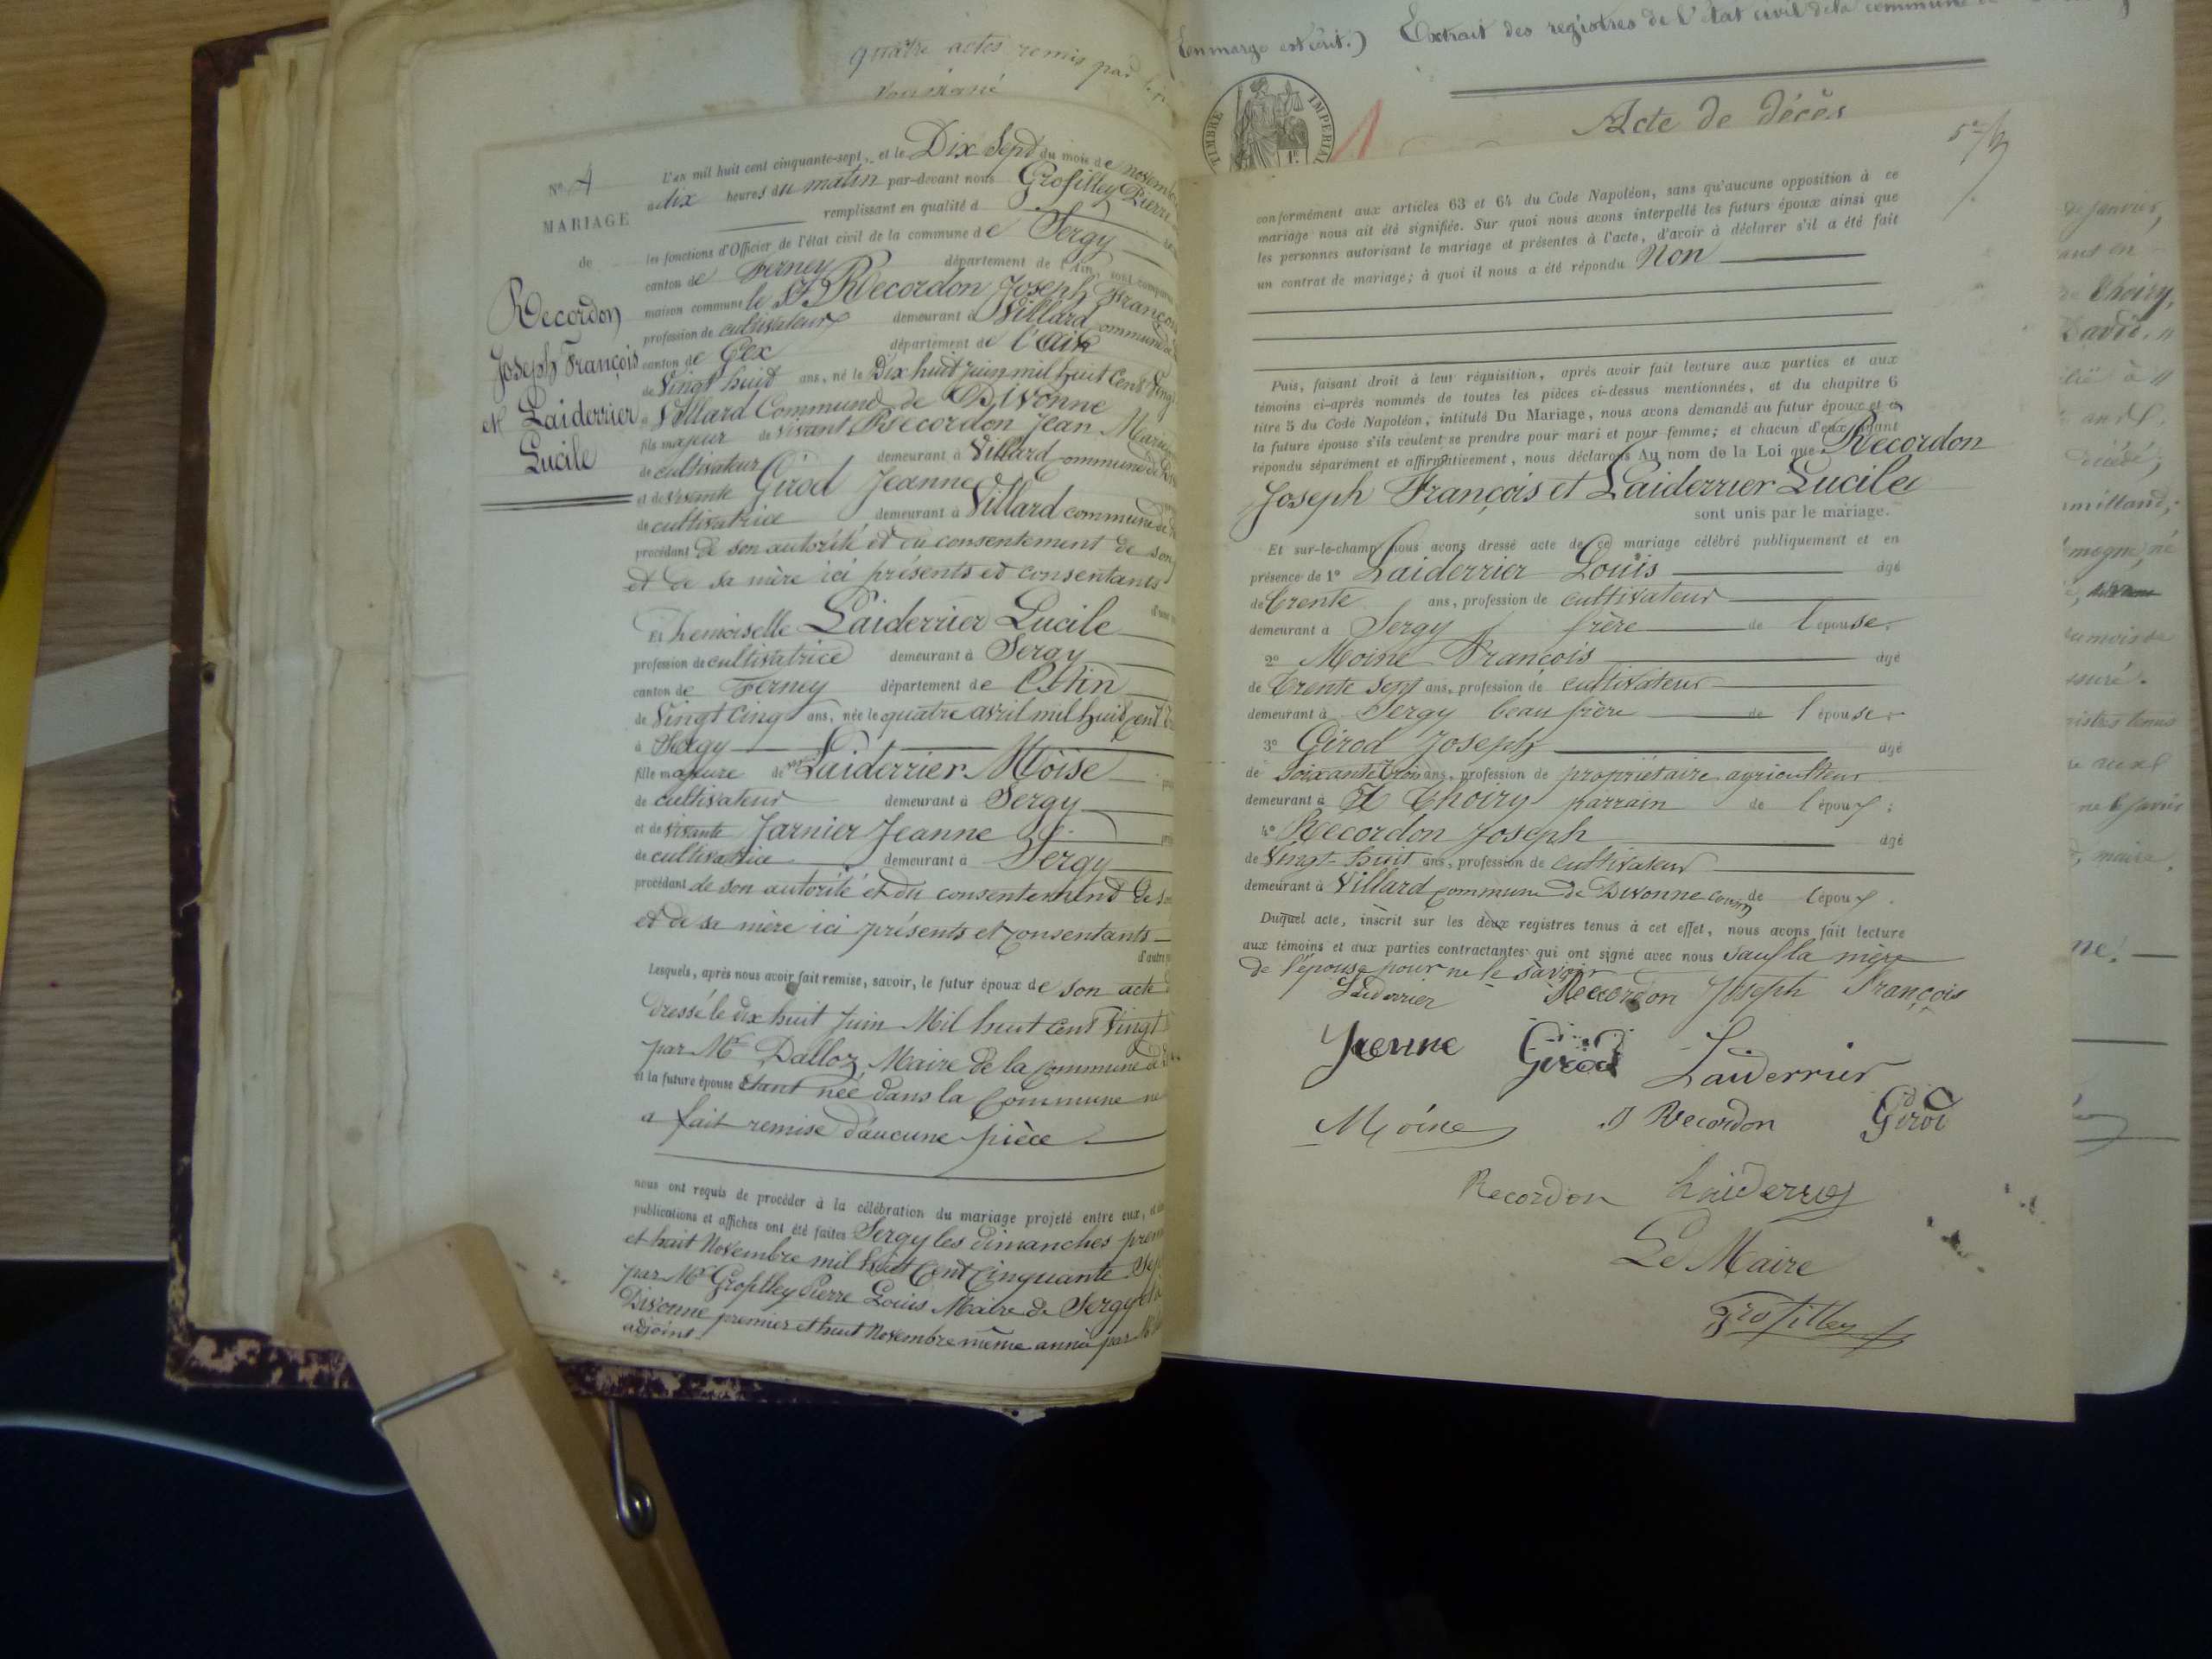 quatre actes remis par
Nº 4
MARIAGE
de
Recordon
Joseph François
et Laiderrier
Lucile
L'an mil huit cent cinquante-sept, et le Dix Sept du mois de novembre
à dix heures du matin par-devant nous Grosfilley Pierre
remplissant en qualité d
les fonctions d'Officier de l'état civil de la commune de Sergy
canton de Ferney département de l'Ain, sont comparus
maison commune le Sr Recordon Joseph François
profession de cultivateur demeurant à Villard commune de
canton de Gex département de l'Ain
de Vingt huit ans, né le Dix huit juin mil huit Cent Vingt
à Villard Commune de Divonne
fils majeur de vivant Recordon Jean Marie
de cultivateur demeurant à Villard commune de
et de vivante Girod Jeanne
de cultivatrice demeurant à Villard commune de
procédant de son autorité et du consentement de son
et de sa mère ici présents et consentants
Et Demoiselle Laiderrier Lucile
profession de cultivatrice demeurant à Sergy
canton de Ferney département de l'Ain
de Vingt Cinq ans, née le quatre avril mil huit cent
à Sergy
fille majeure de Laiderrier Moïse
de cultivateur demeurant à Sergy
et de vivante Jarnier Jeanne
de cultivatrice demeurant à Sergy
procédant de son autorité et du consentement de
et de sa mère ici présents et consentants
Lesquels, après nous avoir fait remise, savoir, le futur époux de son acte
dressé le dix huit Juin Mil huit Cent Vingt
par Mr Dalloz, Maire de la commune de
et la future épouse étant née dans la Commune ne
a fait remise d'aucune pièce.
nous ont requis de procéder à la célébration du mariage projeté entre eux,
publications et affiches ont été faites Sergy les dimanches premier
et huit Novembre mil huit Cent Cinquante Sept
par Mr Grosfilley Pierre Louis Maire de Sergy et à
Divonne premier et huit Novembre même année par Mr
adjoint.
(en marge est écrit.) Extrait des registres de l'état civil de la commune de
TIMBRE IMPERIAL
Acte de décès
conformément aux articles 63 et 64 du Code Napoléon, sans qu'aucune opposition à ce
mariage nous ait été signifiée. Sur quoi nous avons interpellé les futurs époux ainsi que
les personnes autorisant le mariage et présentes à l'acte, d'avoir à déclarer s'il a été fait
un contrat de mariage; à quoi il nous a été répondu Non
Puis, faisant droit à leur réquisition, après avoir fait lecture aux parties et aux
témoins ci-après nommés de toutes les pièces ci-dessus mentionnées, et du chapitre 6
titre 5 du Code Napoléon, intitulé Du Mariage, nous avons demandé au futur époux et à
la future épouse s'ils veulent se prendre pour mari et pour femme; et chacun d'eux ayant
répondu séparément et affirmativement, nous déclarons Au nom de la Loi que Recordon
Joseph François et Laiderrier Lucile
sont unis par le mariage.
Et sur-le-champ nous avons dressé acte de ce mariage célébré publiquement et en
présence de 1º Laiderrier Louis âgé
de trente ans, profession de cultivateur
demeurant à Sergy frère de l'épouse.
2º Moine François âgé
de trente sept ans, profession de cultivateur
demeurant à Sergy beau frère de l'épouse.
3º Girod Joseph âgé
de soixante trois ans, profession de propriétaire agriculteur
demeurant à St Thoiry parrain de l'époux;
4º Recordon Joseph âgé
de Vingt-huit ans, profession de cultivateur
demeurant à Villard commune de Divonne cousin de l'époux.
Duquel acte, inscrit sur les deux registres tenus à cet effet, nous avons fait lecture
aux témoins et aux parties contractantes qui ont signé avec nous sauf la mère
de l'épouse pour ne le savoir
Laiderrier Recordon Joseph François
Jeenne Girod Laiderrier
Moine J Recordon Girod
Recordon Laiderrier
Le Maire
Grosfilley